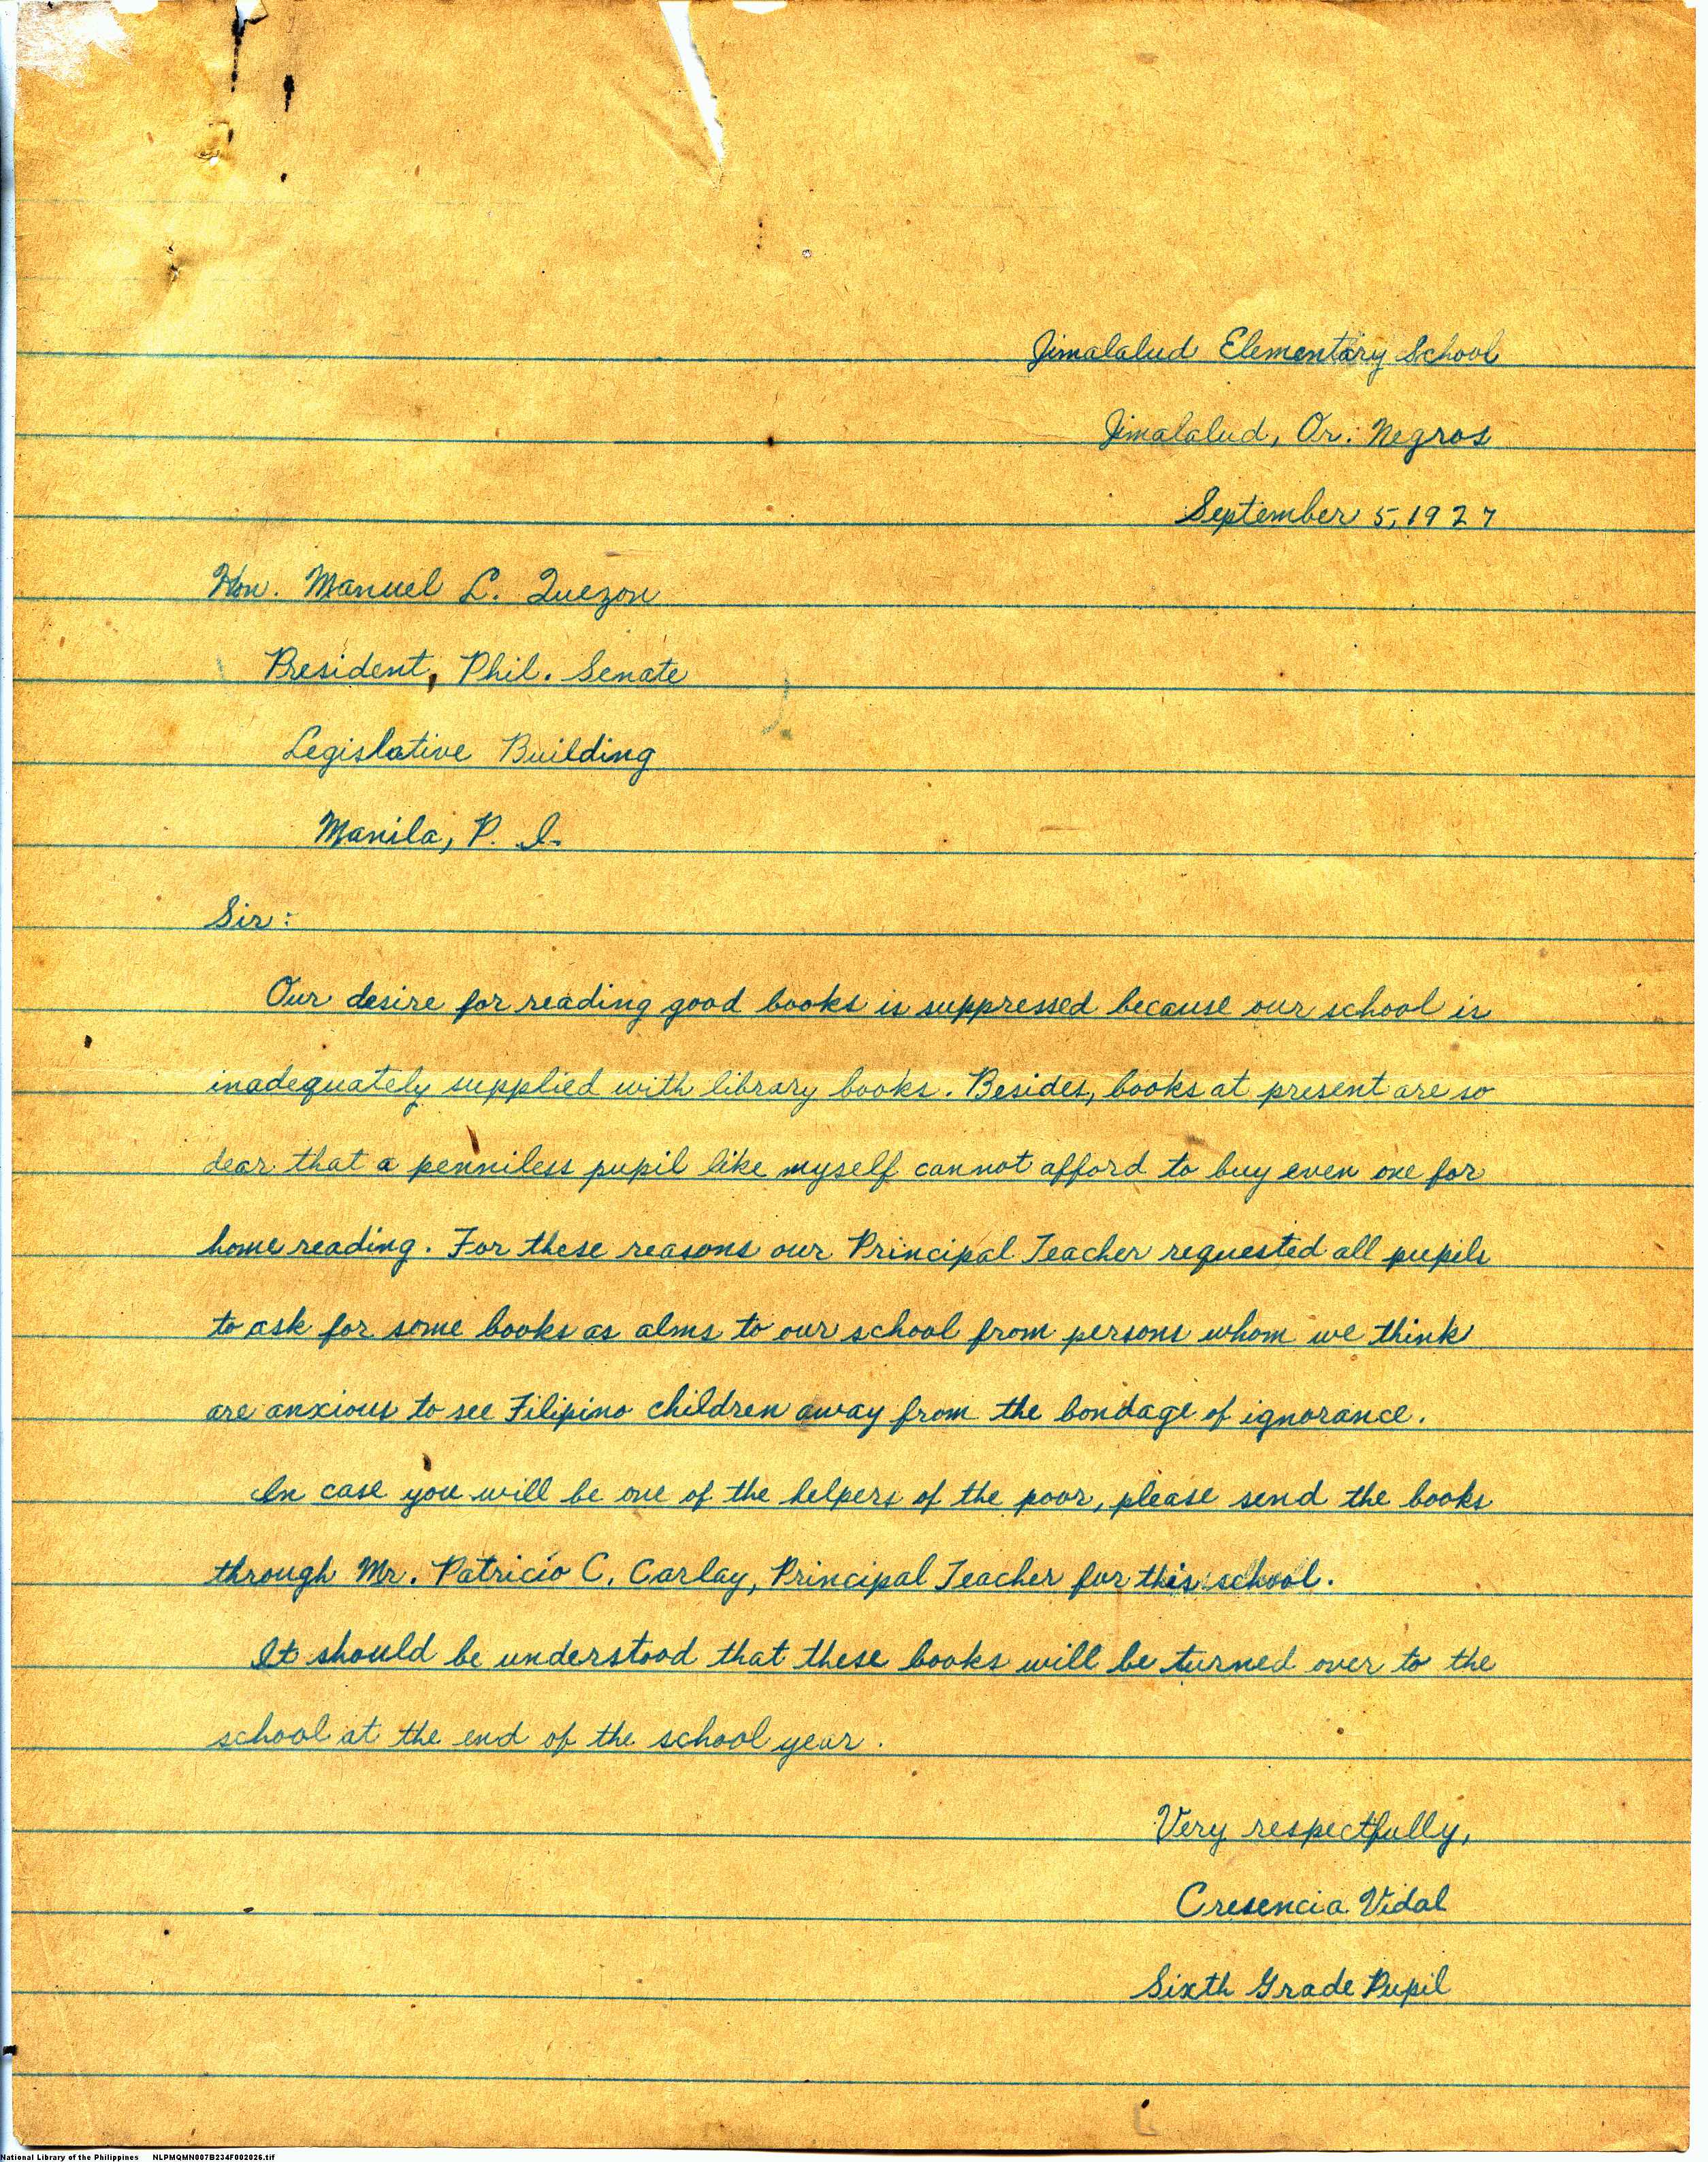 Jimalalud Elementary School
Jimalalud, Or. Negros
September 5, 1927
Hon. Manuel L. Quezon
President, Phil. Senate
Legislative Building
Manila, P. I.
Sir:
Our desire for reading good books is suppressed because our school is
inadequately supplied with library books. Besides, books at present are so
dear that a penniless pupil like myself cannot afford to buy even one for
home reading. For these reasons our Principal Teacher requested all pupils
to ask for some books as alms to our school from persons whom we think
are anxious to see Filipino children away from the bondage of ignorance.
In case you will be one of the helpers of the poor, please send the books
through Mr. Patricio C. Carlay, Principal Teacher for this school.
It should be understood that these books will be turned over to the
school at the end of the school year.
Very respectfully,
Cresencia Vidal
Sixth Grade Pupil
National Library of the Philippines NLPMQMN007B234F002026.tif